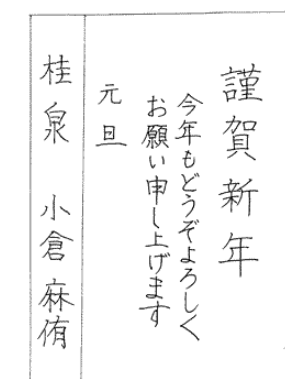 謹賀新年
今年もどうぞよろしく
お願い申し上げます
元旦
桂泉 小倉麻侑